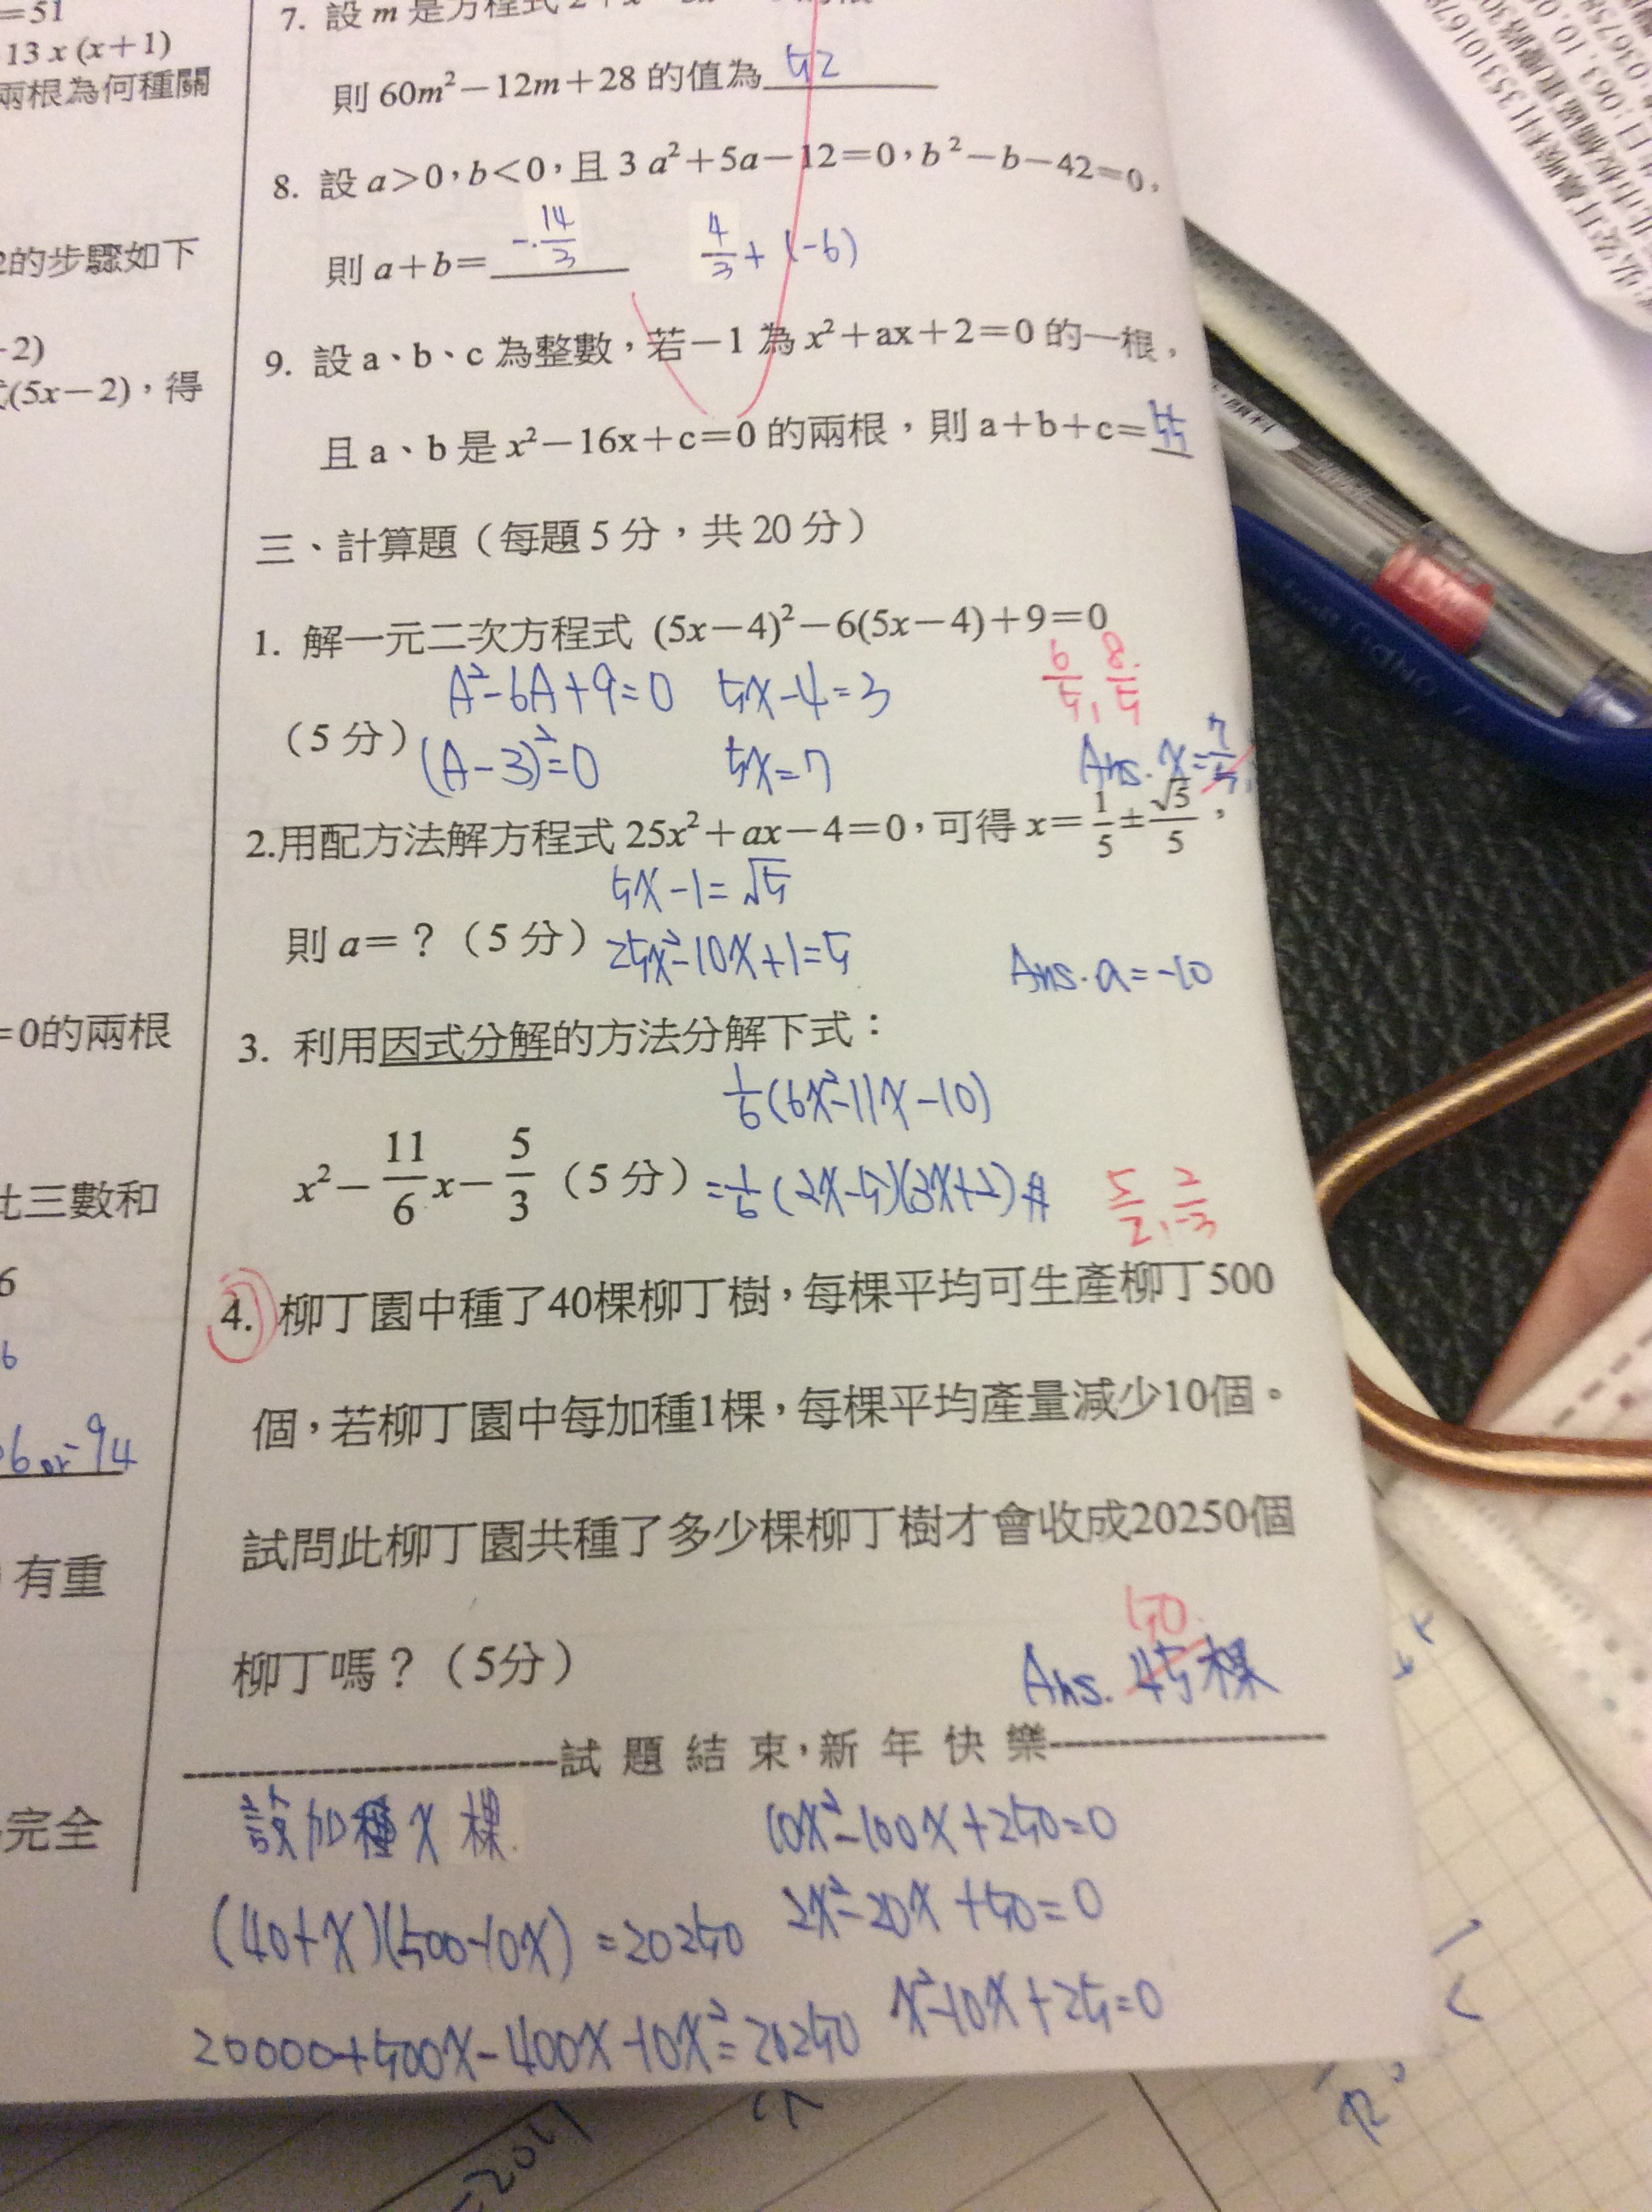 =51
13 x (x+1)
兩根為何種關
的步驟如下
-2)
(5x-2),得
=0的兩根
比三數和
6
6
6 or -94
有重
完全
7. 設 m 是方程式
則 60m²-12m+28 的值為 52
8. 設 a>0,b<0,且 3 a²+5a-12=0,b²-b-42=0,
則 a+b= -14/3 4/3+(-6)
9. 設 a、b、c 為整數,若-1 為 x²+ax+2=0 的一根,
且 a、b 是 x²-16x+c=0 的兩根,則 a+b+c=55
三、計算題(每題 5 分,共 20 分)
1. 解一元二次方程式 (5x-4)²-6(5x-4)+9=0
A²-6A+9=0 5x-4=3 6/5, 8/5
(5 分) (A-3)²=0 5x=7 Ans. x=7/5
2.用配方法解方程式 25x²+ax-4=0,可得 x=1/5±√5/5,
5x-1=√5
則 a=?(5 分) 25x²-10x+1=5 Ans. a=-10
3. 利用因式分解的方法分解下式:
1/6(6x²-11x-10)
x²-11/6x-5/3(5 分) =1/6(2x-5)(3x+2)# 5/2, 2/-3
4. 柳丁園中種了40棵柳丁樹,每棵平均可生產柳丁500
個,若柳丁園中每加種1棵,每棵平均產量減少10個。
試問此柳丁園共種了多少棵柳丁樹才會收成20250個
50
柳丁嗎?(5分) Ans. 45棵
試題結束,新年快樂
設加種 x 棵.
(40+x)(500-10x)=20250
20000+500x-400x-10x²=20250
10x²-100x+250=0
2x²-20x+50=0
x²-10x+25=0